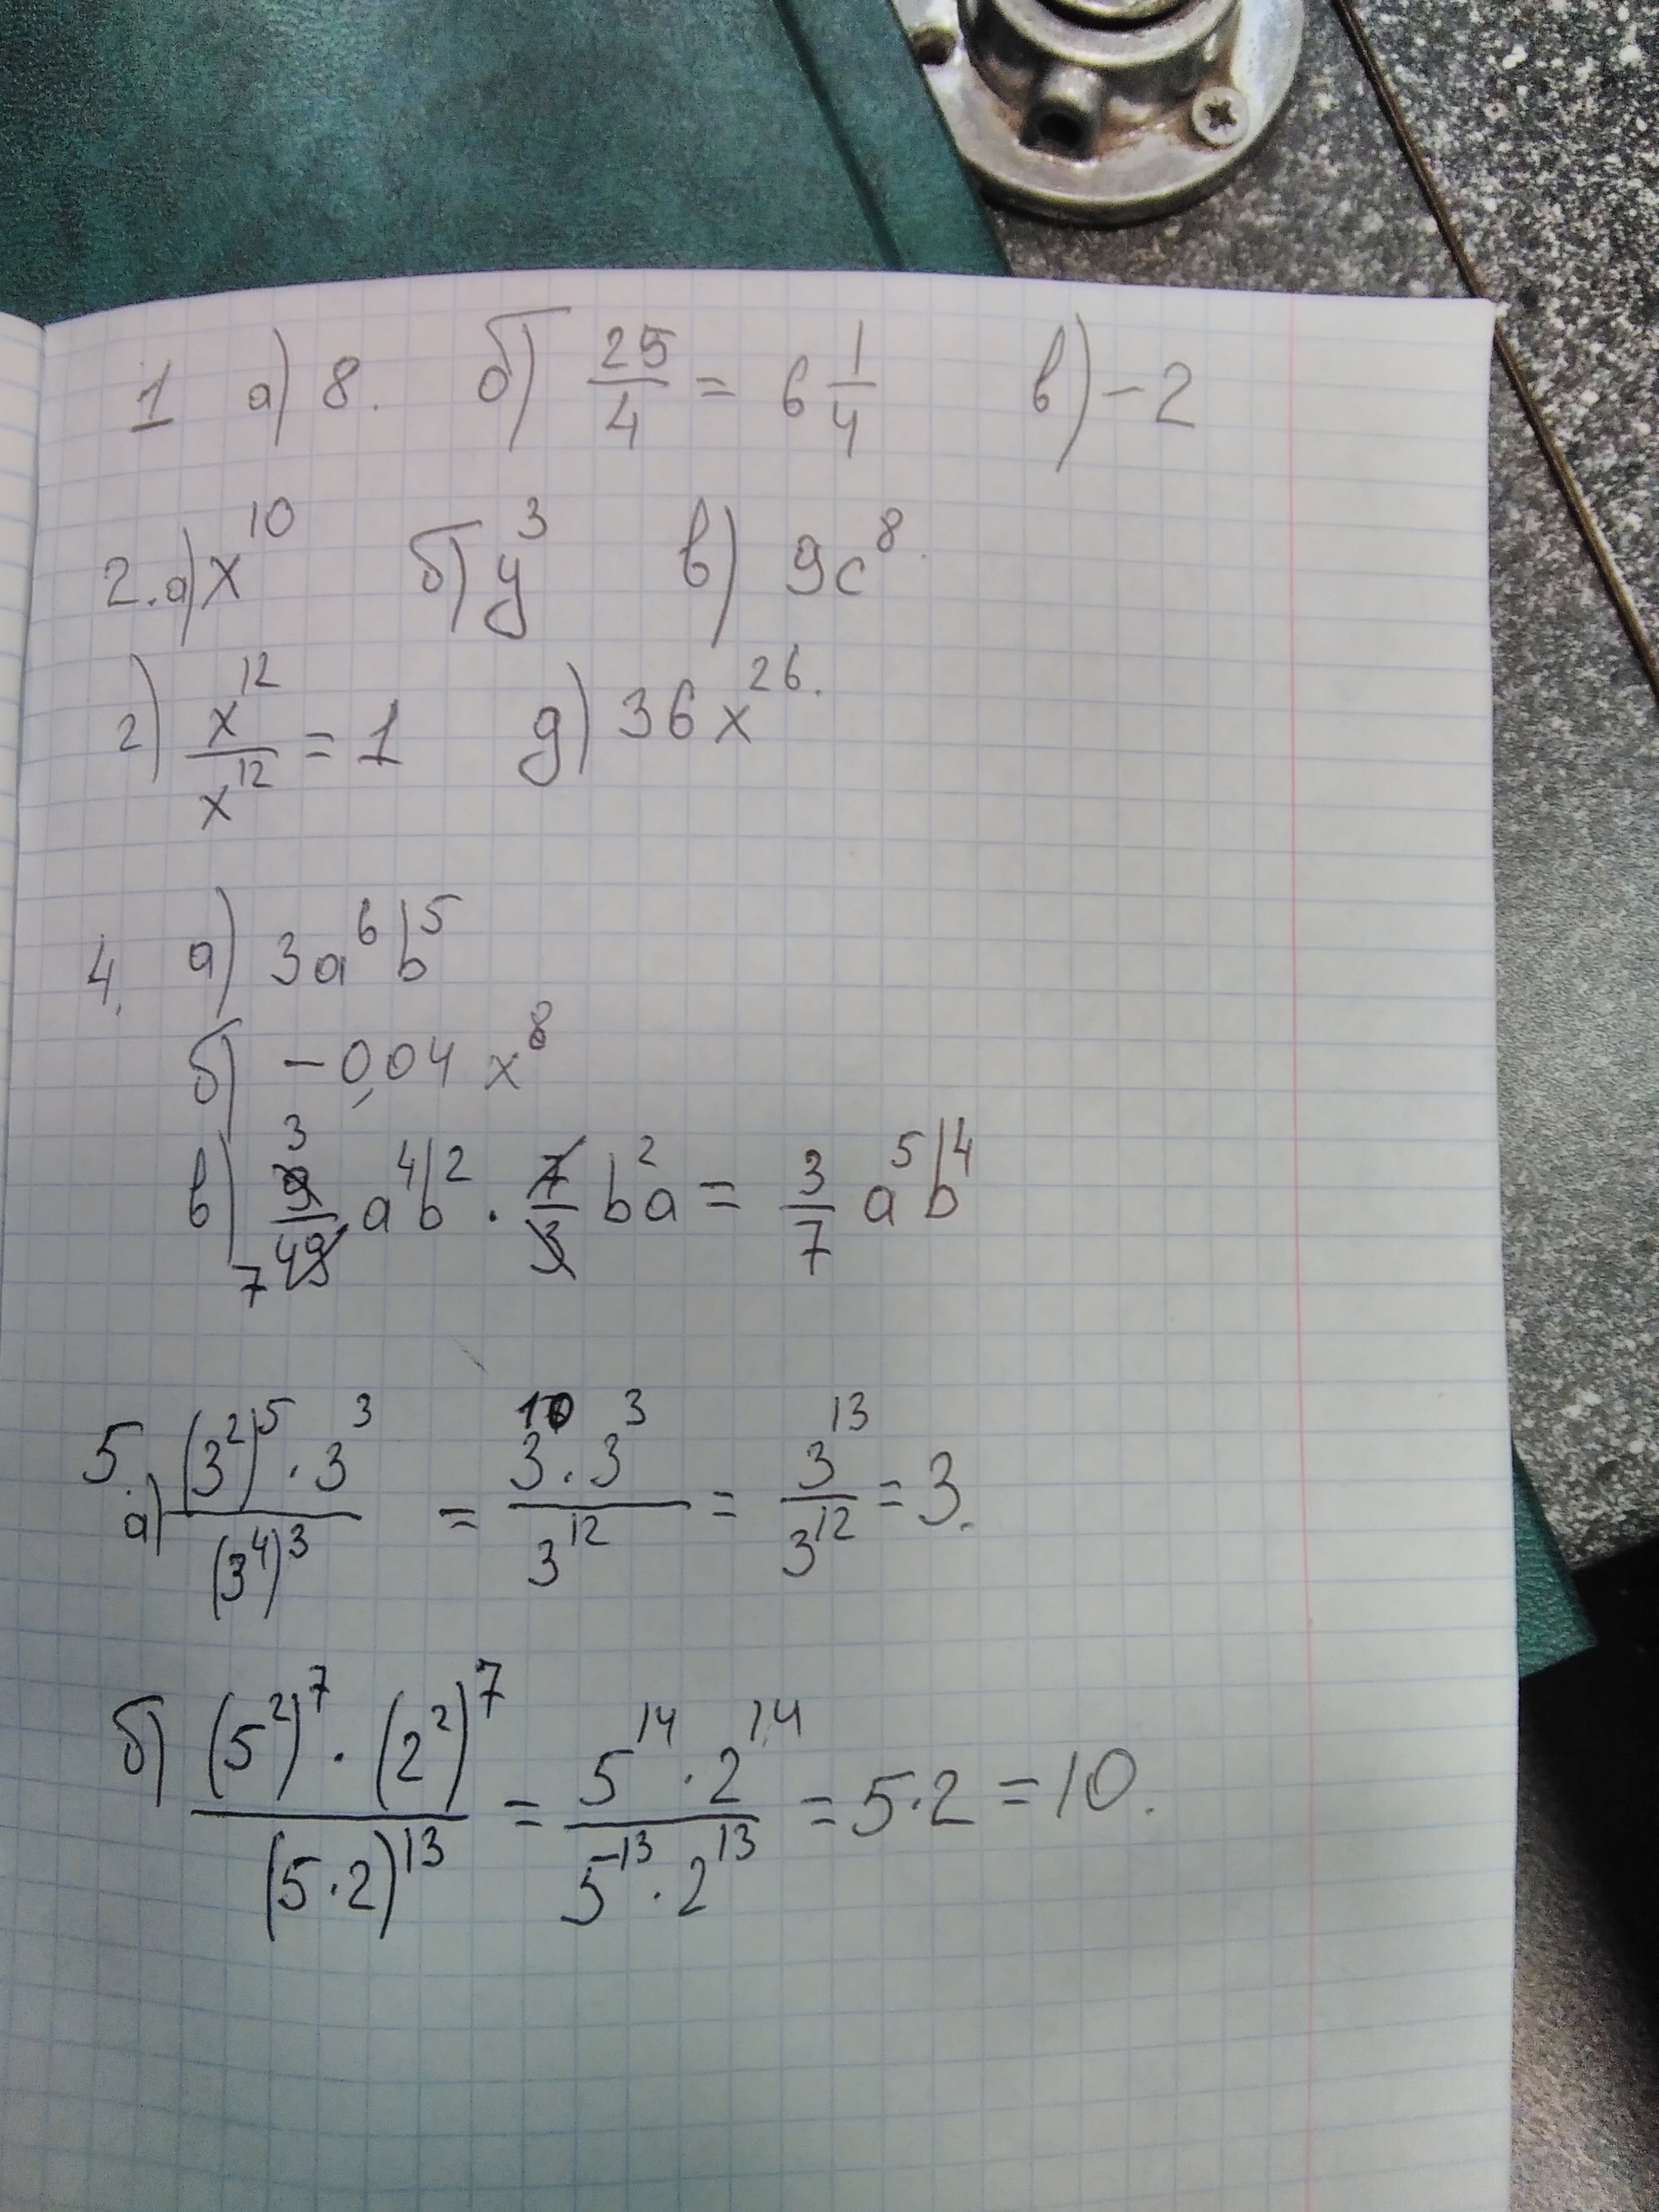 1 а) 8. б) 25/4 = 6 1/4 в) -2
2. а) x^10 б) y^3 в) 9c^8.
г) x^12/x^12 = 1 д) 36x^26.
4. а) 3a^6b^5
б) -0,04 x^8
в) 9/49 a^4b^2 · 7/3 b^2a = 3/7 a^5b^4
3
7
5. а) (3^2)^5 · 3^3/(3^4)^3 = 3^10 · 3^3/3^12 = 3^13/3^12 = 3.
б) (5^2)^7 · (2^2)^7/(5·2)^13 = 5^14 · 2^14/5^13 · 2^13 = 5·2 = 10.